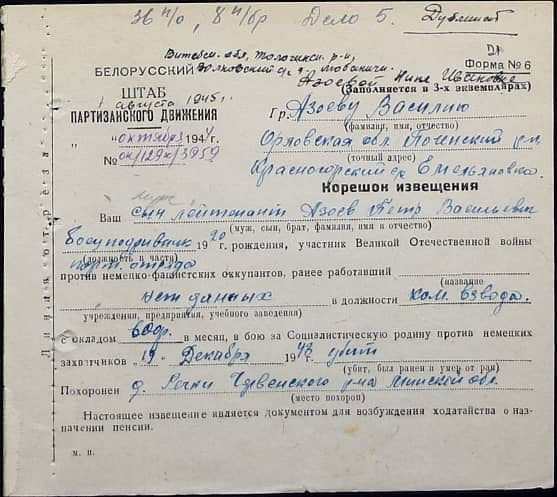 36 п/о, 8 п/бр Дело 5. Дубликат
Витебск. обл, Толочинск. р-н,
Волковский с/с д. Любаничи.
Азоевой Нине Ивановне
Форма № 6
БЕЛОРУССКИЙ
(Заполняется в 3-х экземплярах)
ШТАБ
1 августа 1945 г.
ПАРТИЗАНСКОГО ДВИЖЕНИЯ
Гр. Азоеву Василию
(фамилия, имя, отчество)
"октября 194 г.
Орловская обл.
(точный адрес)
Красногорский с/с Емельяновка.
Корешок извещения
муж
Ваш сын лейтенант Азоев Петр Васильевич
(муж, сын, брат, фамилия, имя и отчество)
1920 г. рождения, участник Великой Отечественной войны
(должность в части)
парт. отряда
против немецко-фашистских оккупантов, ранее работавший
(название
нет данных в должности ком. взвода.
учреждения, предприятия, учебного заведения)
с окладом в месяц, в бою за Социалистическую родину против немецких
захватчиков 19 " Декабря 1943 убит
(убит, был ранен и умер от ран)
Похоронен д. Речки Червенского р-на Минской обл.
(место похорон)
Настоящее извещение является документом для возбуждения ходатайства о назначении
пенсии.
м. п.
Линия отреза